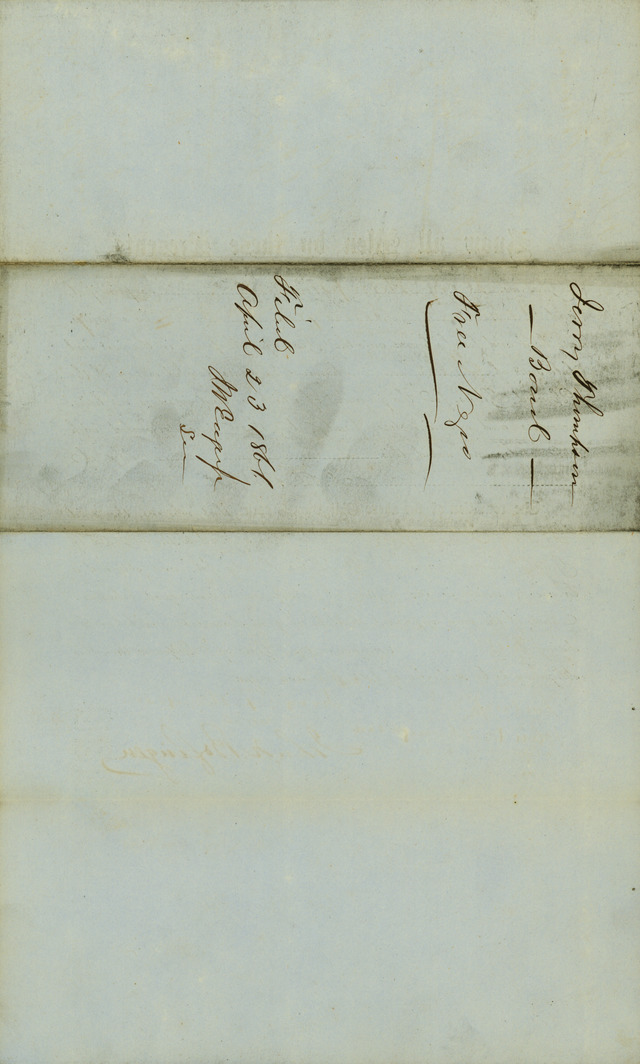 Jerry Thomhson
Bond
Free Negro
Filed
April 23 1861